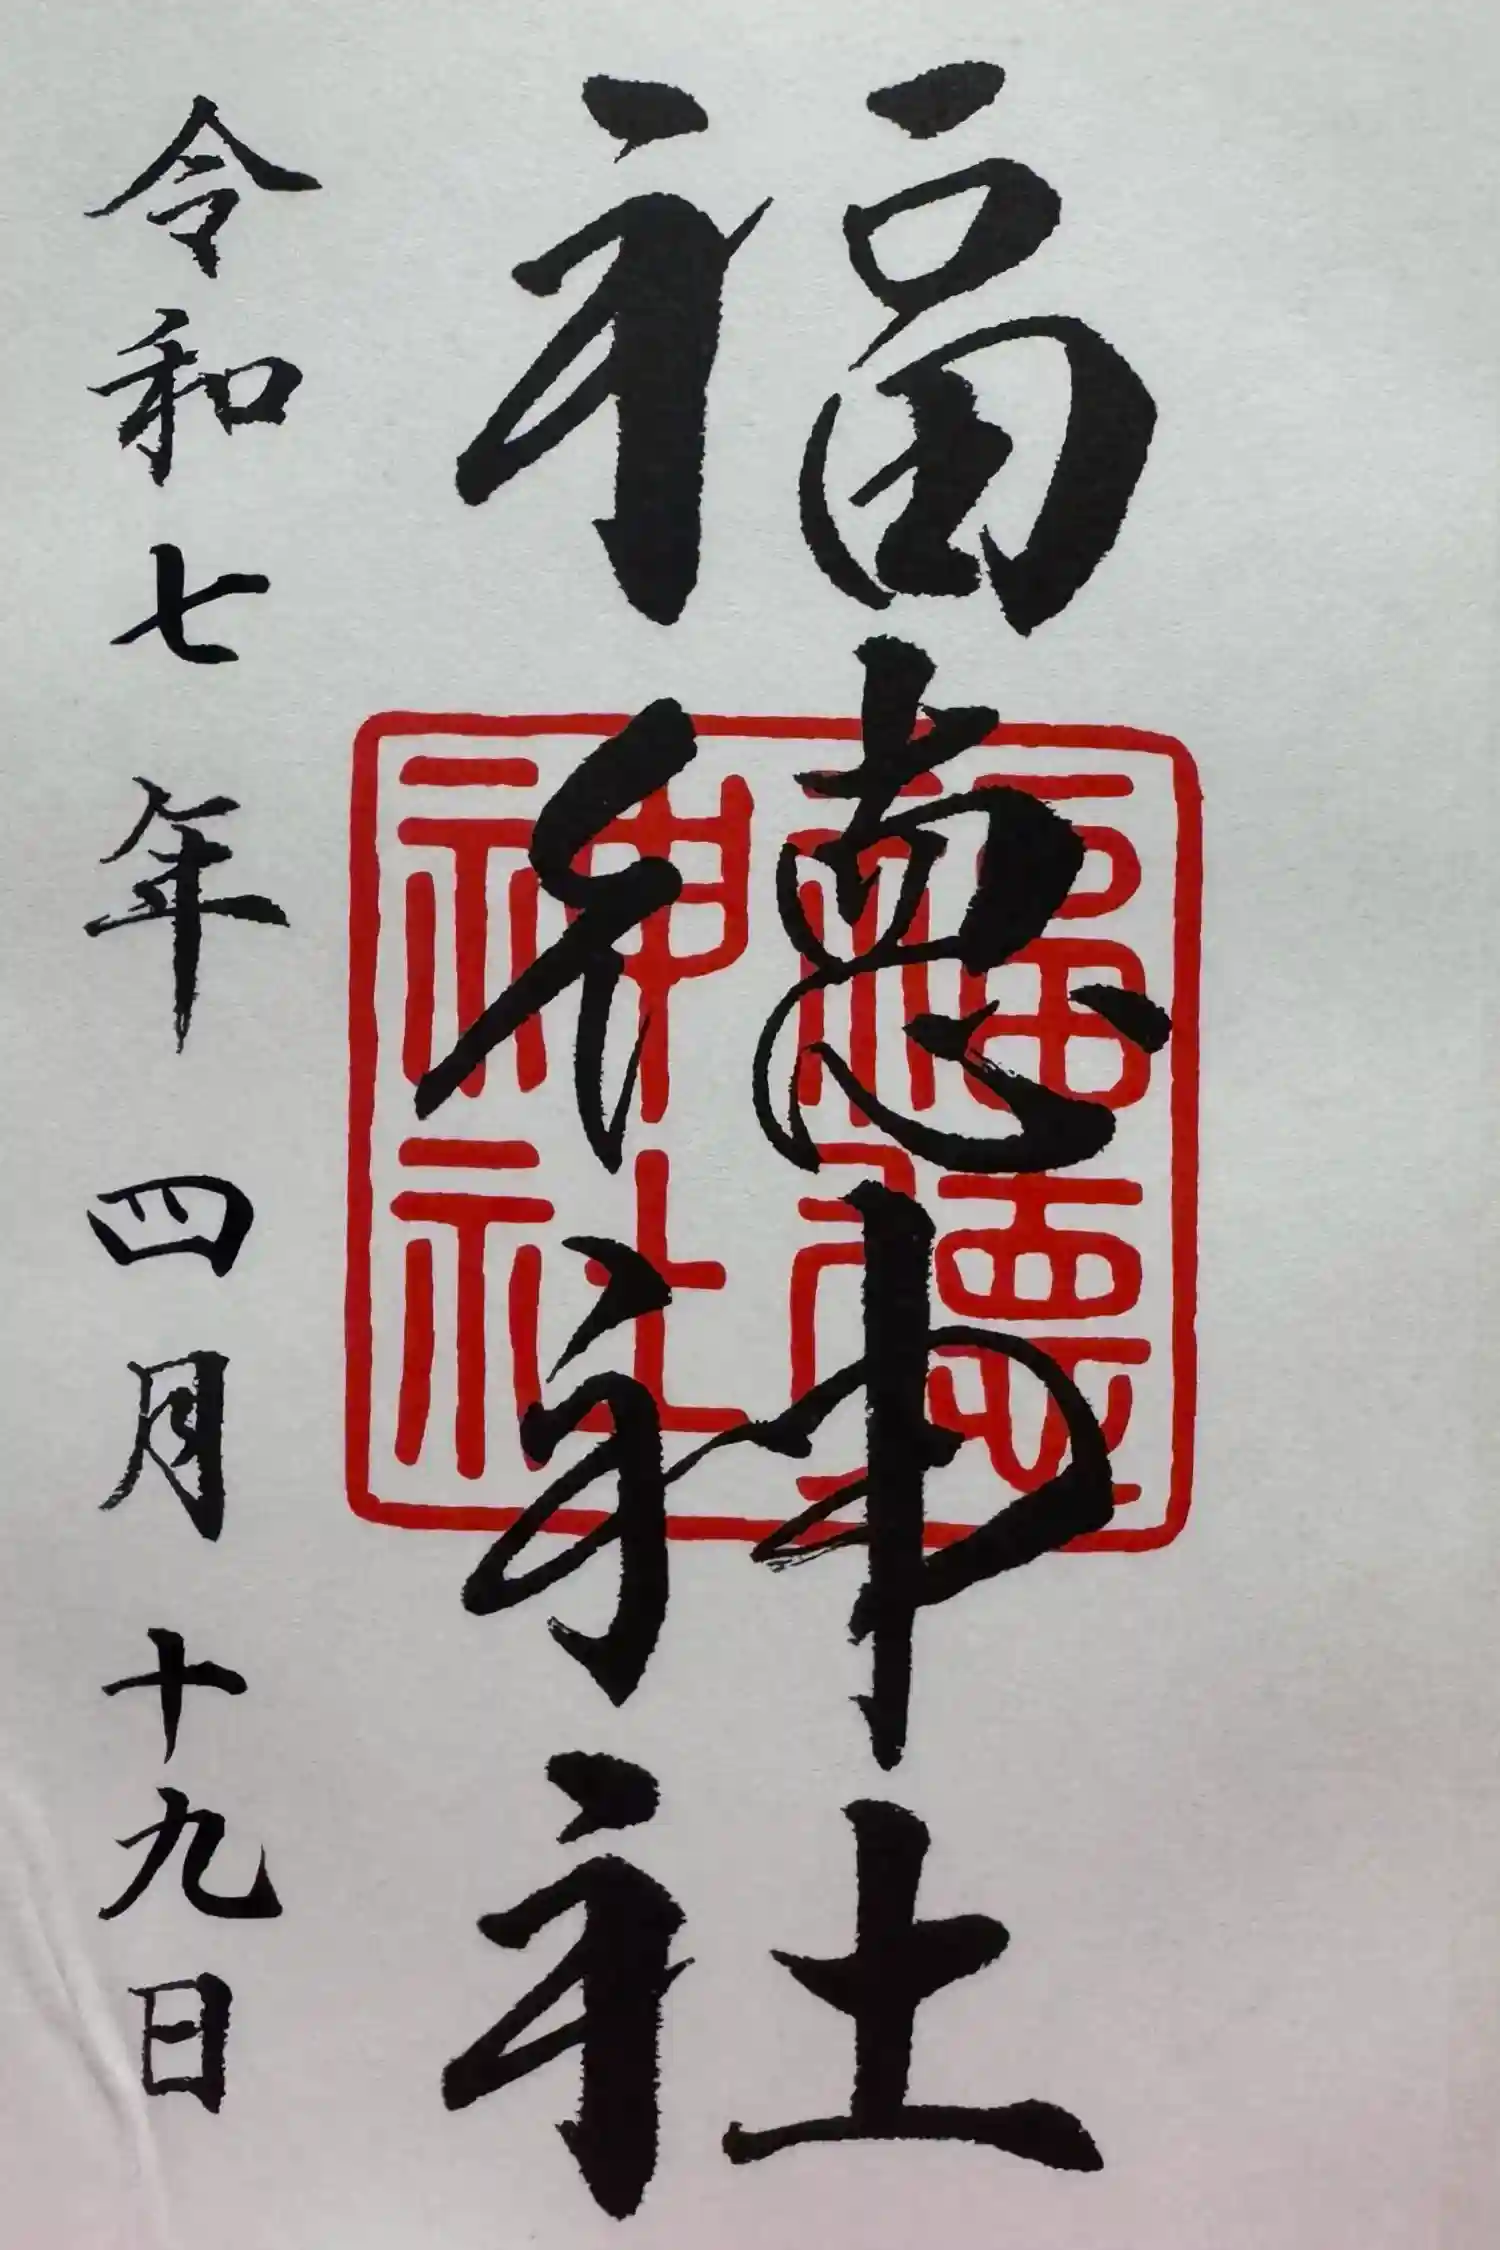 福徳神社
福徳
神社
令和七年 四月十九日